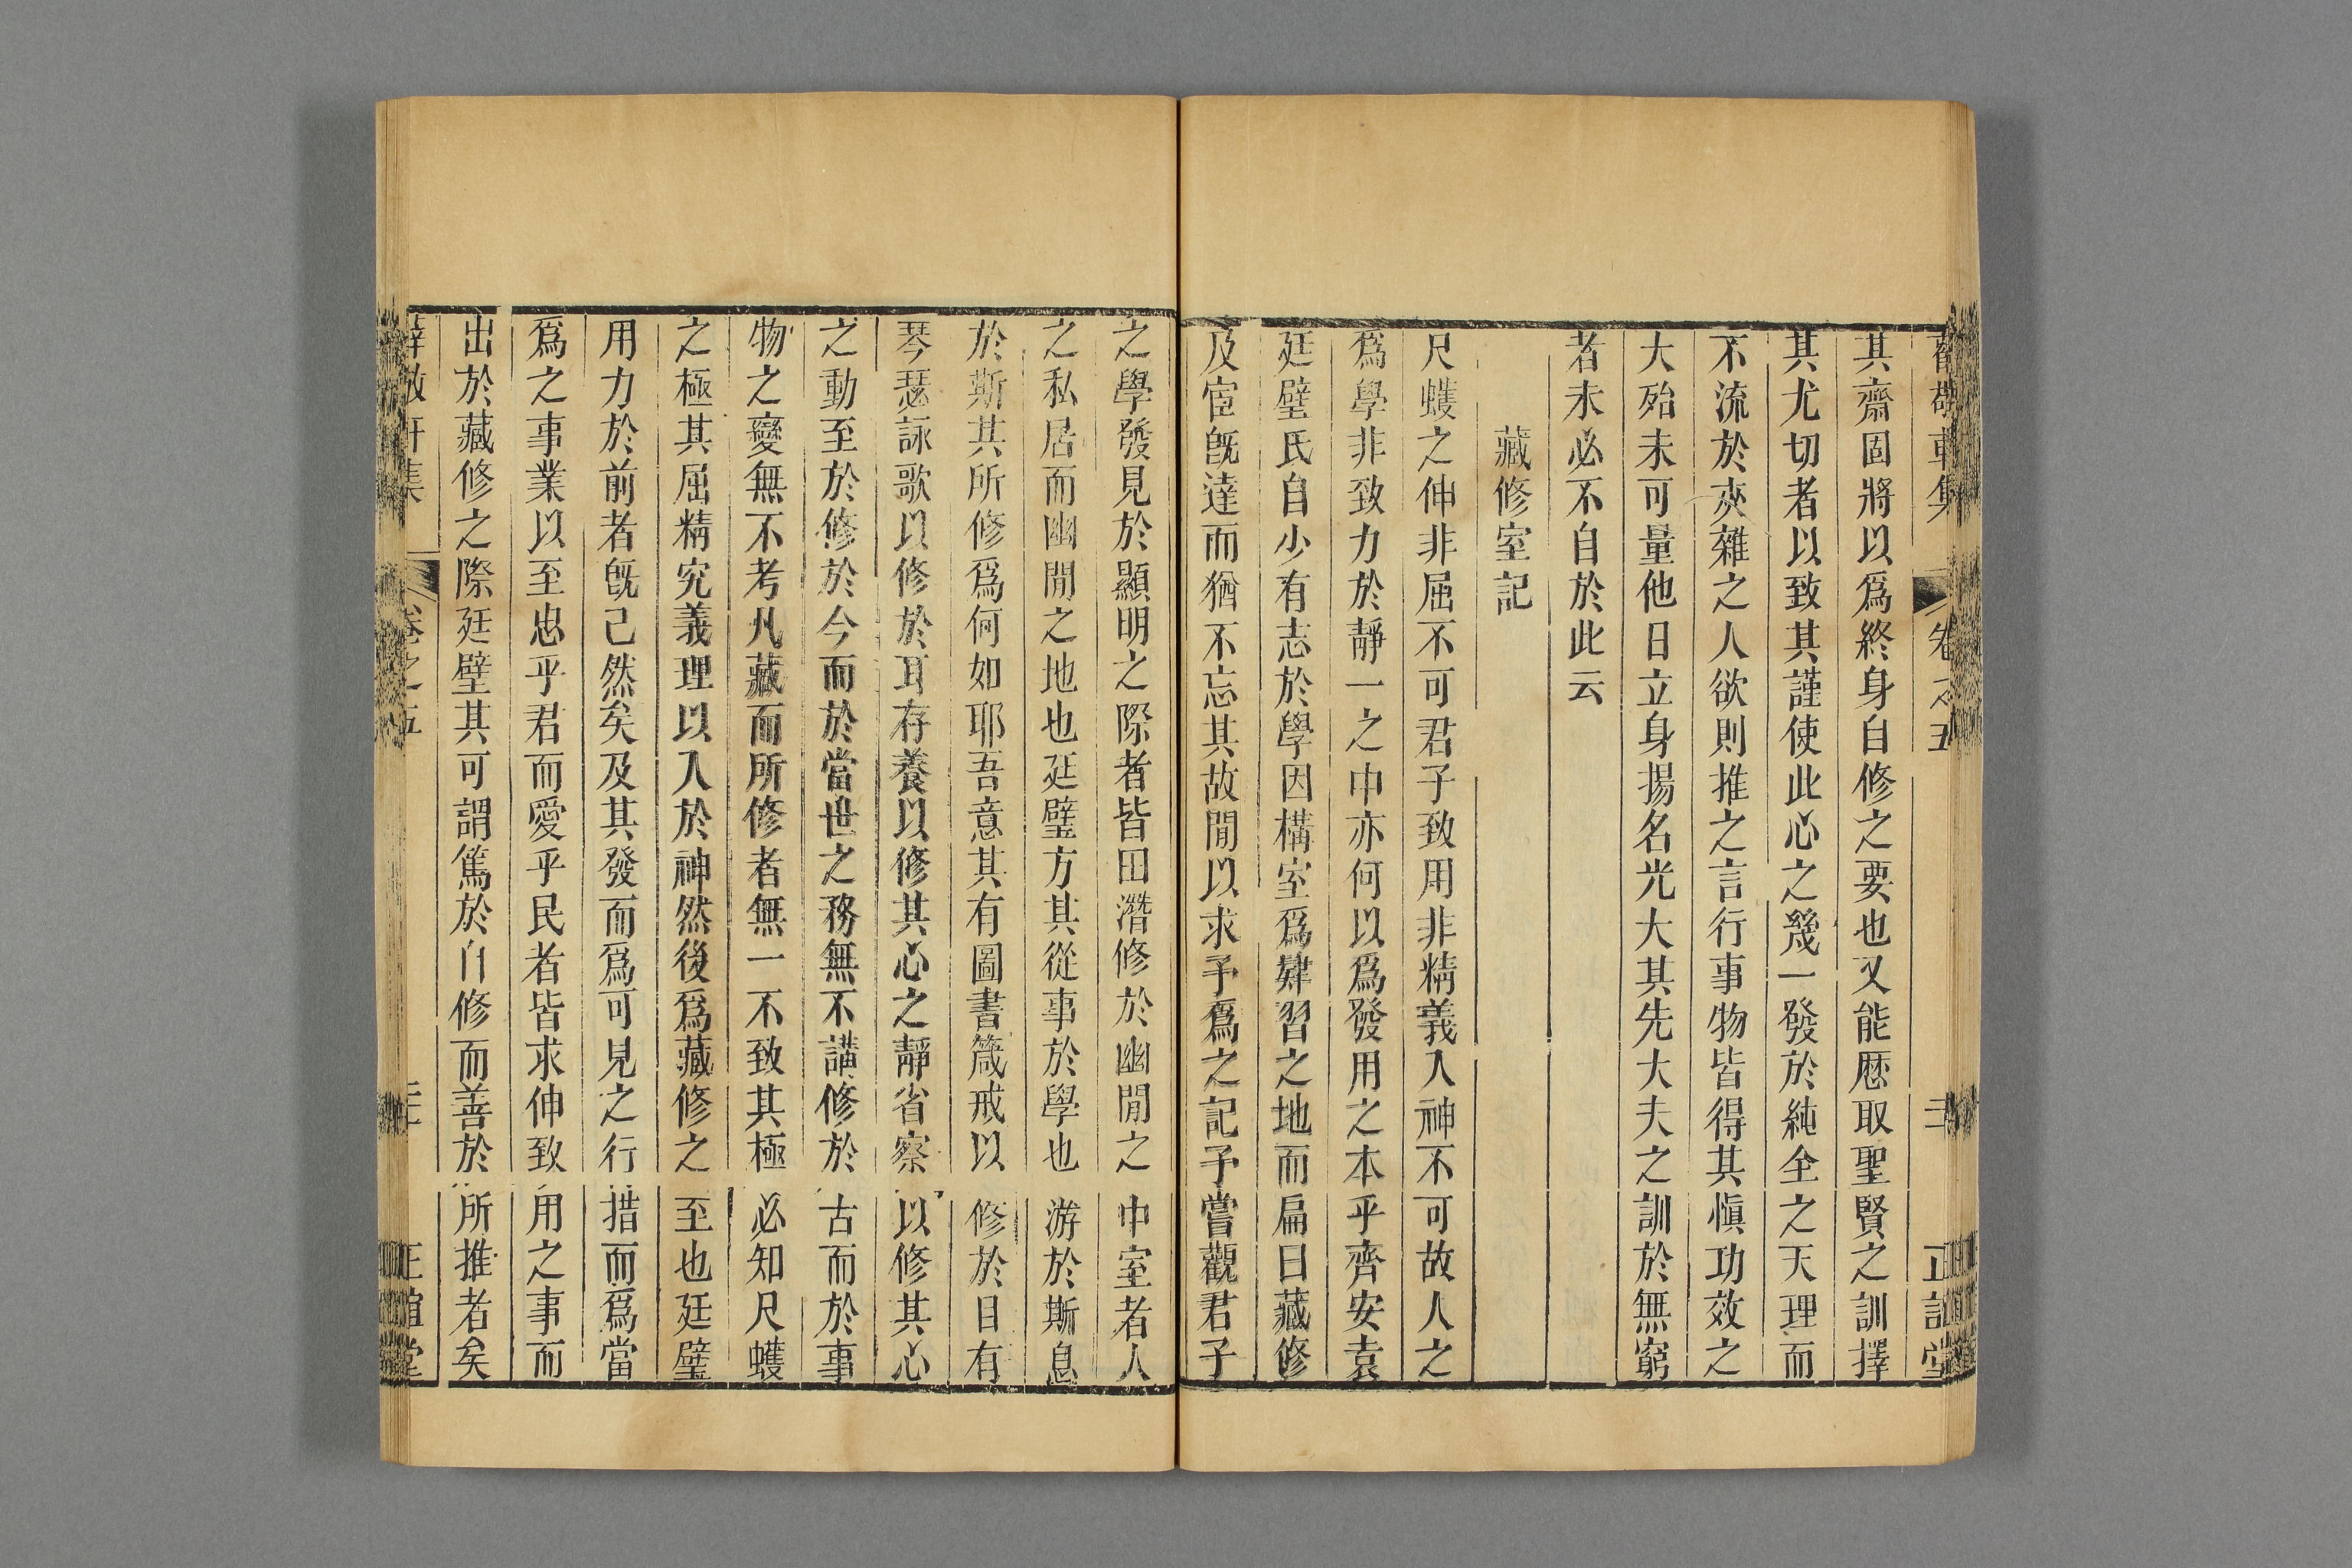 其齋固將以爲終身自修之要也又能歷取聖賢之訓擇
其尤切者以致其謹使此心之幾一發於純全之天理而
不流於夾雜之人欲則推之言行事物皆得其愼功效之
大殆未可量他日立身揚名光大其先大夫之訓於無窮
者未必不自於此云
藏修室記
尺蠖之伸非屈不可君子致用非精義入神不可故人之
爲學非致力於靜一之中亦何以爲發用之本乎齊安袁
廷璧氏自少有志於學因構室爲肄習之地而扁曰藏修
及宦旣達而猶不忘其故閒以求予爲之記予嘗觀君子
之學發見於顯明之際者皆由潛修於幽閒之中室者人
之私居而幽閒之地也廷璧方其從事於學也游於斯息
於斯其所修爲何如耶吾意其有圖書箴戒以修於目有
琴瑟詠歌以修於耳存養以修其心之靜省察以修其心
之動至於修於今而於當世之務無不講修於古而於事
物之變無不考凡藏而所修者無一不致其極必知尺蠖
之極其屈精究義理以入於神然後爲藏修之至也廷璧
用力於前者旣已然矣及其發而爲可見之行措而爲當
爲之事業以至忠乎君而愛乎民者皆求伸致用之事而
出於藏修之際廷璧其可謂篤於自修而善於所推者矣
薛敬軒集 卷之五